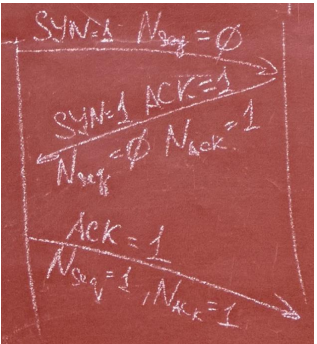 SYN=1 Nseq=Ø
SYN=1 ACK=1
Nseq=Ø NACK=1
ACK=1
Nseq=1, NACK=1